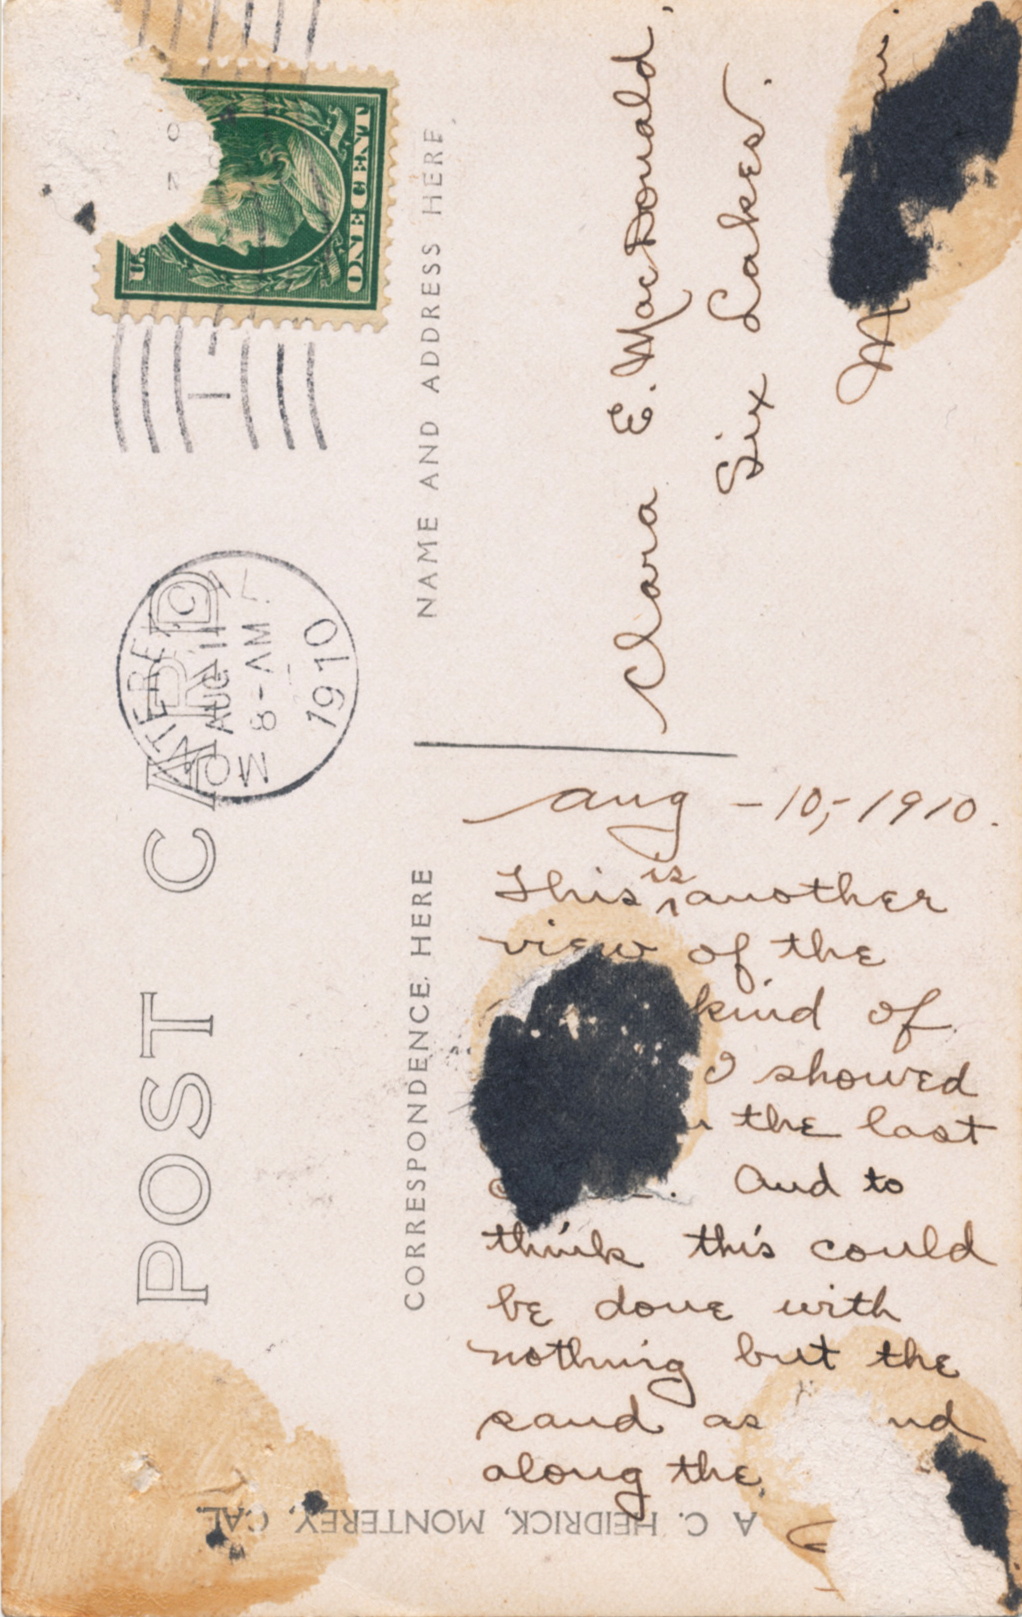 POST CARD
MONTEREY CAL.
AUG 11
8-AM
1910
U.S.
ONE CENT
NAME AND ADDRESS HERE
Clara E. MacDonald,
Six Lakes.
CORRESPONDENCE HERE
Aug - 10,- 1910.
This is another
view of the
kind of
I showed
the last
. And to
think this could
be done with
nothing but the
sand as
along the
A C. HEIDRICK, MONTEREY, CAL.